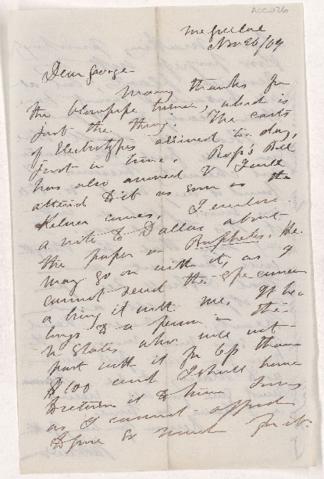 Nov 26/69
Dear George
Many thanks for
the blowpipe
just the thing. The casts
of Electrotypes arrived to day,
just in time. Bill
has also arrived & I will
attend to it as soon as the
comes. I enclose
a note to Dallas about
the paper on he
may go on with it, as I
cannot send the specimen
a bring it with me. It be-
longs to a person in the
U States who will not
part with it for less than
$100 and I shall have
to return it to him
as I cannot afford
to give so much for it.